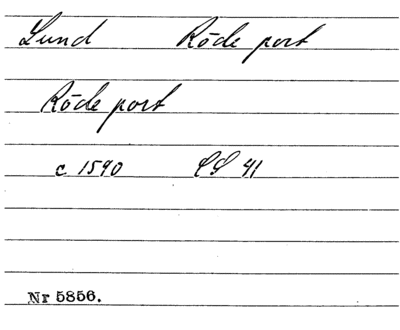 Lund Röde port
Röde port
c 1590 CS 41
Nr 5856.